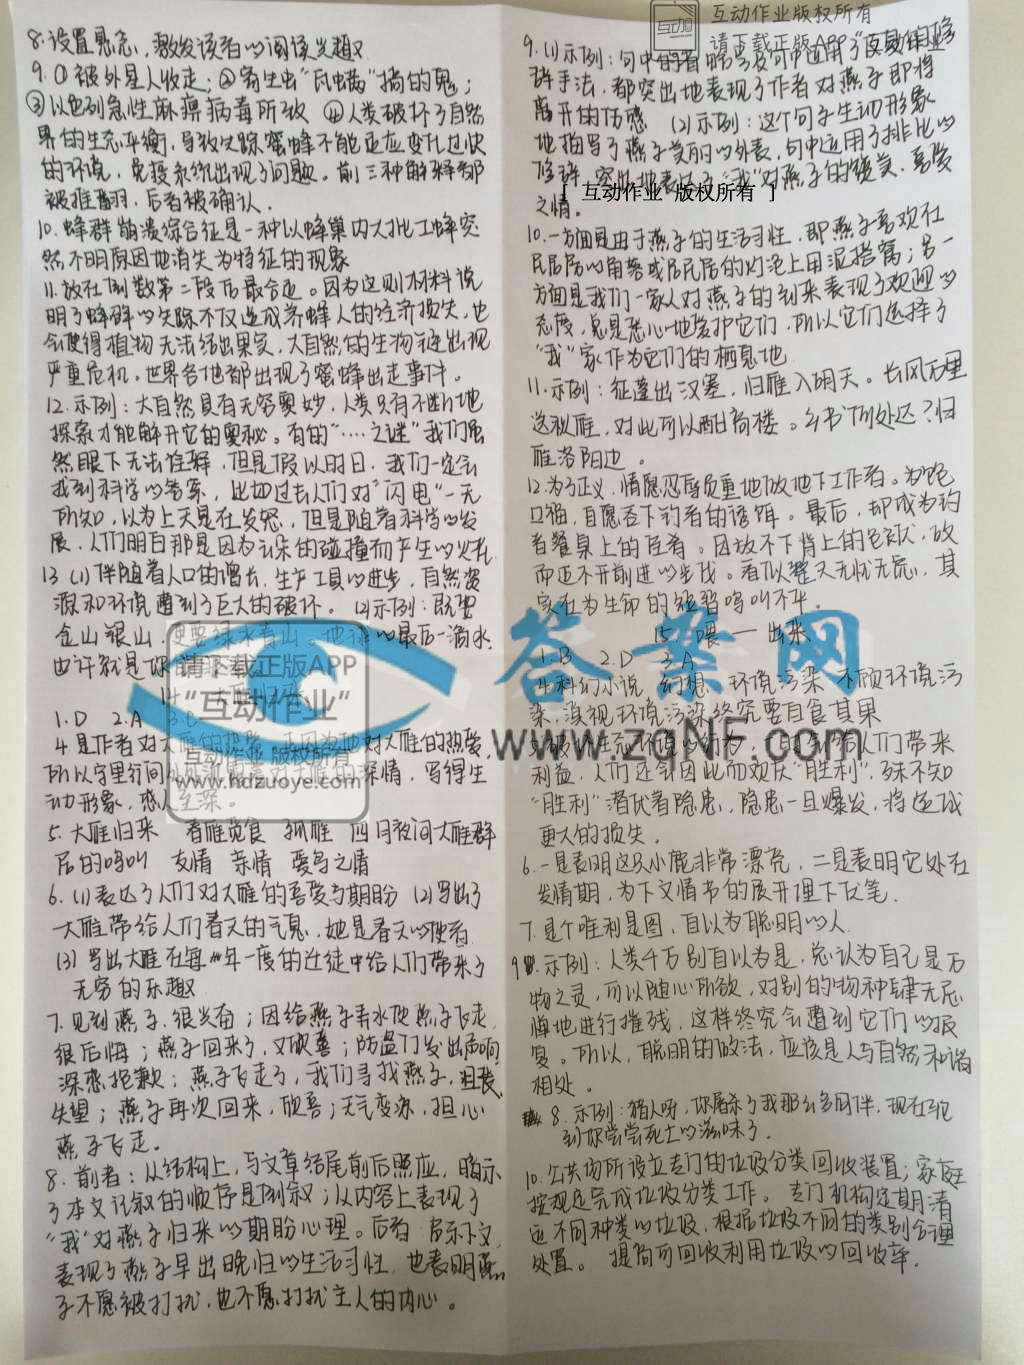 8.设置悬念,激发读者的阅读兴趣
9.①被外星人收走;②寄生虫“瓦螨”搞的鬼;
③以色列急性麻痹病毒所致 ④人类破坏了自然
界的生态平衡,导致失踪蜜蜂不能适应变化过快
的环境,免疫系统出现了问题。前三种解释都
被推翻,后者被确认.
10.蜂群崩溃综合征是一种以蜂巢内大批工蜂突
然不明原因地消失为特征的现象
11.放在倒数第二段后最合适。因为这则材料说
明了蜂群的失踪不仅造成养蜂人的经济损失,也
会使得植物无法结出果实,大自然的生物链出现
严重危机.世界各地都出现了蜜蜂出走事件。
12.示例:大自然具有无穷奥妙,人类只有不断地
探索才能解开它的奥秘。有的“....之谜”我们虽
然眼下无法诠释,但是假以时日,我们一定会
找到科学的答案,比如过去人们对“闪电”一无
所知,以为上天是在发怒,但是随着科学的发
展,人们明白那是因为云朵的碰撞而产生的火花
13 (1)伴随着人口的增长,生产工具的进步,自然资
源和环境遭到了巨大的破坏。 (2)示例:既要
金山银山,更要绿水青山 地球的最后一滴水
也许就是你
请下载正版APP
“互动作业”
互动作业 版权所有
www.hdzuoye.com
1.D 2.A 3.C
4.是作者对大雁的热爱,正因为他对大雁的热爱,
所以字里行间 深情,写得生
动形象,感人至深。
5.大雁归来 春雁觅食 孤雁 四月夜间大雁群
居的鸣叫 友情 亲情 爱鸟之情
6.(1)表达了人们对大雁的喜爱与期盼 (2)写出了
大雁带给人们春天的气息,她是春天的使者
(3)写出大雁在每年一度的迁徙中给人们带来了
无穷的乐趣
7.见到燕子,很兴奋;因给燕子弄水使燕子飞走,
很后悔;燕子回来了,又欣喜;防盗门发出声响
深感抱歉;燕子飞走了,我们寻找燕子,沮丧、
失望;燕子再次回来,欣喜;天气变凉,担心
燕子飞走。
8.前者:从结构上,与文章结尾前后照应,暗示
了本文记叙的顺序是倒叙;从内容上表现了
“我”对燕子归来的期盼心理。后者:启示下文,
表现了燕子早出晚归的生活习性,也表明燕
子不愿被打扰,也不愿打扰主人的内心。
互动作业版权所有
请下载正版APP“互动作业
9.(1)示例:句中的 句中运用了反复的修
辞手法,都突出地表现了作者对燕子即将
离开的伤感 (2)示例:这个句子生动形象
地描写了燕子美丽的外表,句中运用了排比的
修辞,突出地表达了“我”对燕子的赞美、喜爱
[ 互动作业 版权所有 ]
之情。
10.一方面是由于燕子的生活习性,即燕子喜欢在
民居房的角落或居民居的灯泡上用泥搭窝;另一
方面是我们一家人对燕子的到来表现了欢迎的
态度,总是悉心地爱护它们,所以它们选择了
“我”家作为它们的栖息地
11.示例:征蓬出汉塞,归雁入胡天。长风万里
送秋雁,对此可以酣高楼。乡书何处达?归
雁洛阳边。
12.为了正义,情愿忍辱负重地做地下工作者。为饱
口福,自愿吞下钓者的诱饵。最后,却成为钓
者餐桌上的佳肴。因放不下背上的包袱,故
而迈不开前进的步伐。看似整天无忧无虑,其
实在为生命的短暂鸣叫不平。
1.B 2.D 3.A
4.科幻小说,幻想 环境污染 不顾环境污
染,漠视环境污染终究要自食其果
给人们带来
利益,人们还会因此而欢庆“胜利”,殊不知
“胜利”潜伏着隐患,隐患一旦爆发,将造成
更大的损失。
6.一是表明这只小鹿非常漂亮,二是表明它处在
发情期,为下文情书的展开埋下伏笔.
7.是个唯利是图,自以为聪明的人.
9.示例:人类千万别自以为是,总认为自己是万
物之灵,可以随心所欲,对别的物种肆无忌
惮地进行摧残,这样终究会遭到它们的报
复。所以,聪明的做法,应该是人与自然和谐
相处。
8.示例:猎人呀,你屠杀了我那么多同伴,现在轮
到你尝尝死亡的滋味了.
10.公共场所设立专门的垃圾分类回收装置;家庭
按规定完成垃圾分类工作。专门机构定期清
运不同种类的垃圾,根据垃圾不同的类别合理
处置。 提高可回收利用垃圾的回收率.
答案网
www.zqNF.com